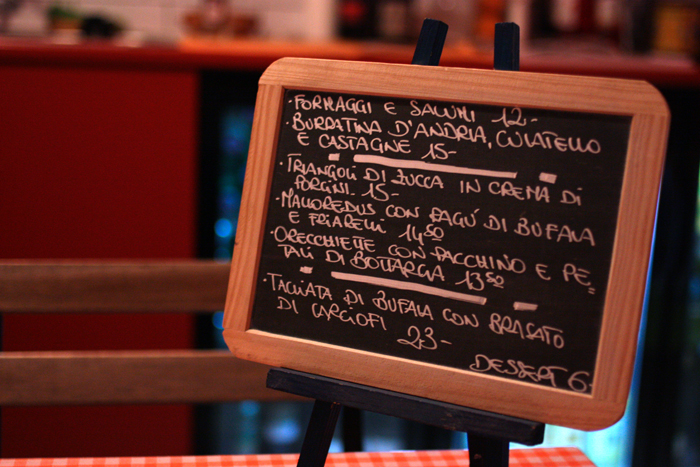 · FORMAGGI E SALUMI 12.-
· BURRATINA D'ANDRIA, CULATELLO
E CASTAGNE 15.-
· TRIANGOLI DI ZUCCA IN CREMA DI
PORCINI. 15.-
· MALLOREDUS CON RAGÙ DI BUFALA
E FRIARELLI 14,50
· ORECCHIETTE CON PACCHINO E PE=
TALI DI BOTTARGA 13,50
· TAGLIATA DI BUFALA CON BRASATO
DI CARCIOFI 23.-
DESSERT 6.-